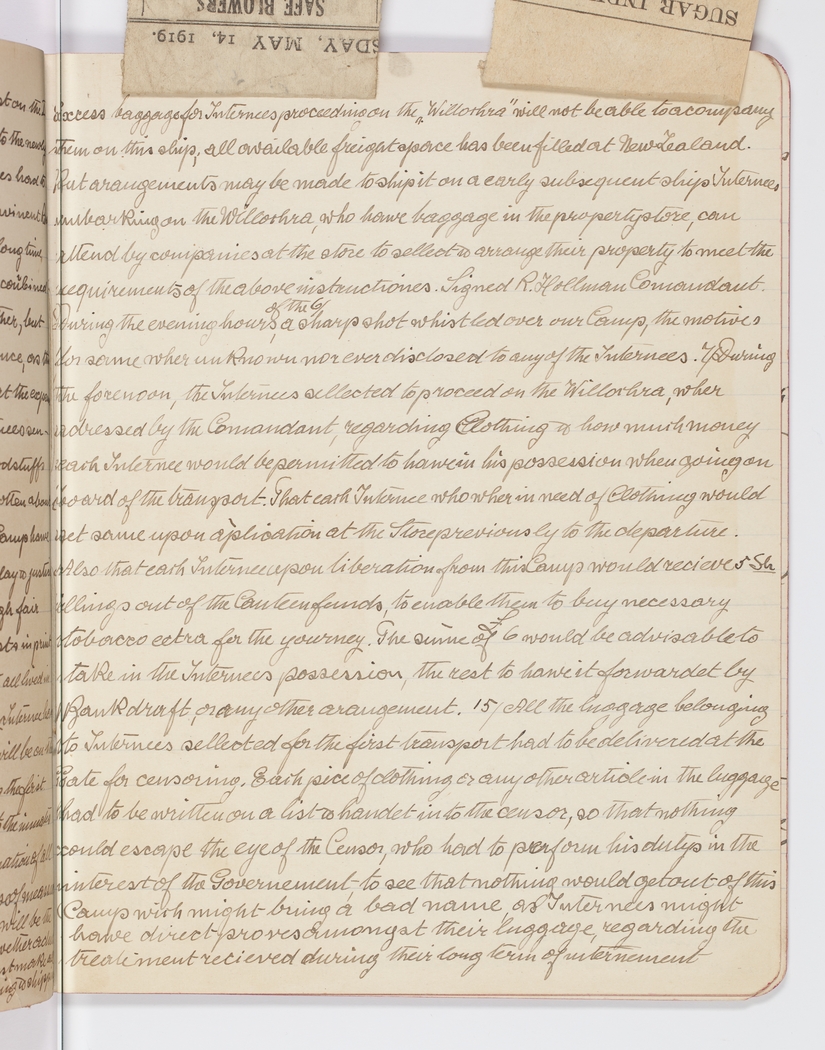 SAFE BLOWERS
SDAY, MAY 14, 1919.
SUGAR IND
Excess baggage for Internees proceeding on the "Willochra" will not be able to acompany
them on this ship, all available freight space has been filled at New Zealand.
But arangements may be made to ship it on a early subsequent ship Internees
embarking on the Willochra, who hawe baggage in the property store, can
attend by companies at the store to sellect & arrange their property to meet the
requirements of the above instructiones. Signed R. Hollman Comandant.
of the 6/
During the evening hours, a sharp shot whistled over our Camp, the motives
for same wher unknown nor ever disclosed to any of the Internees. 7/ During
the forenoon, the Internees sellected to proceed on the Willochra, wher
adressed by the Comandant, regarding Clothing & how much money
each Internee would be permitted to hawe in his possession when going on
board of the transport. That each Internee who wher in need of Clothing would
get same upon aplication at the Store previously to the departure.
Also that each Internee upon liberation from this Camp would recieve 5 Sh
illings out of the Canteen funds, to enable them to buy necessary
tobacco extra for the yourney. The sume of £ 6 would be advisable to
take in the Internees possession, the rest to hawe it forwardet by
Bankdraft, or any other arangement. 15/ All the luggage belonging
to Internees sellected for the first transport had to be delivered at the
Gate for censoring. Each pice of clothing or any other article in the luggage
had to be written on a list & handet in to the censor, so that nothing
could escape the eye of the Censor, who had to perform his dutys in the
interest of the Governement, to see that nothing would get out of this
Camp wich might bring a bad name as Internees might
hawe direct proves amongst their luggage, regarding the
treatement recieved during their long term of internement